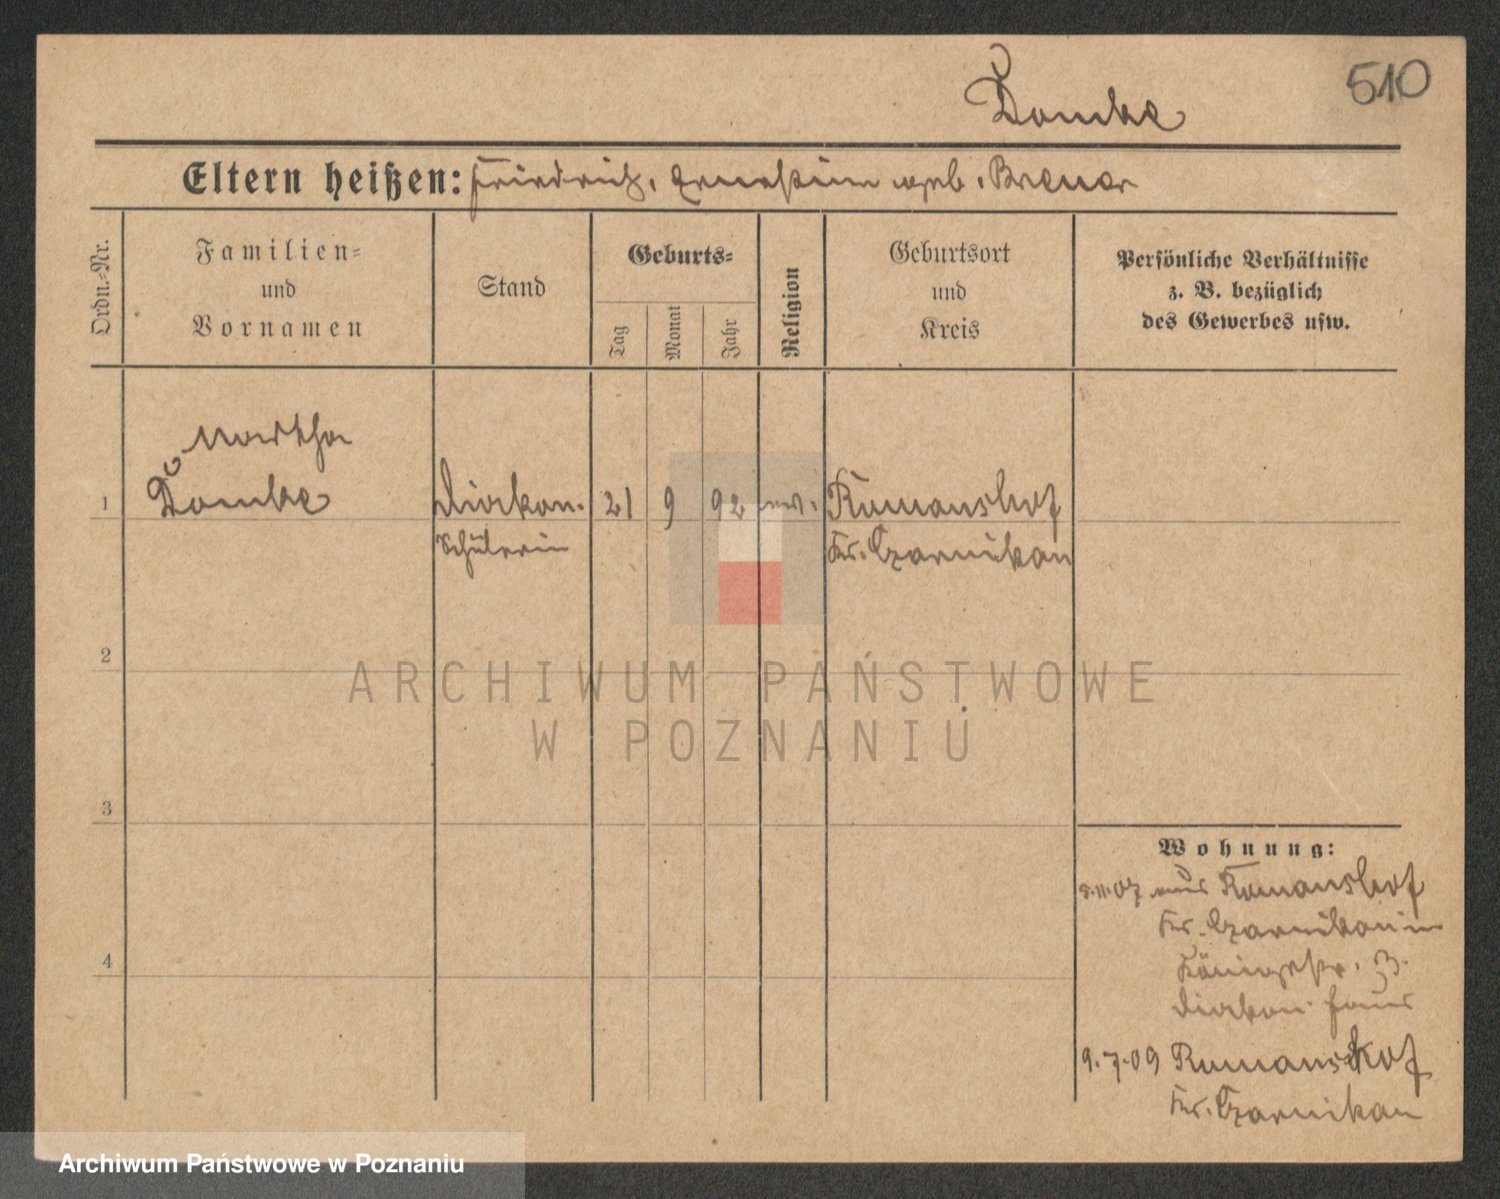 510
Domke
Eltern heißen: Friedrich, Ernestine geb. Breuer
Ordn.-Nr.
Familien-
und
Vornamen
Stand
Geburts-
Tag
Monat
Jahr
Religion
Geburtsort
und
Kreis
Persönliche Verhältnisse
z. B. bezüglich
des Gewerbes usw.
Martha
1 Domke Diakon. 21 9 92 ev. Romanshof
Schülerin Kr. Czarnikau
2
3
4
Wohnung:
5.11.07 aus Romanshof
Kr. Czarnikau in
Königstr. 3.
Diakon. haus
9.7.09 Romanshof
Kr. Czarnikau
ARCHIWUM PAŃSTWOWE
W POZNANIU
Archiwum Państwowe w Poznaniu